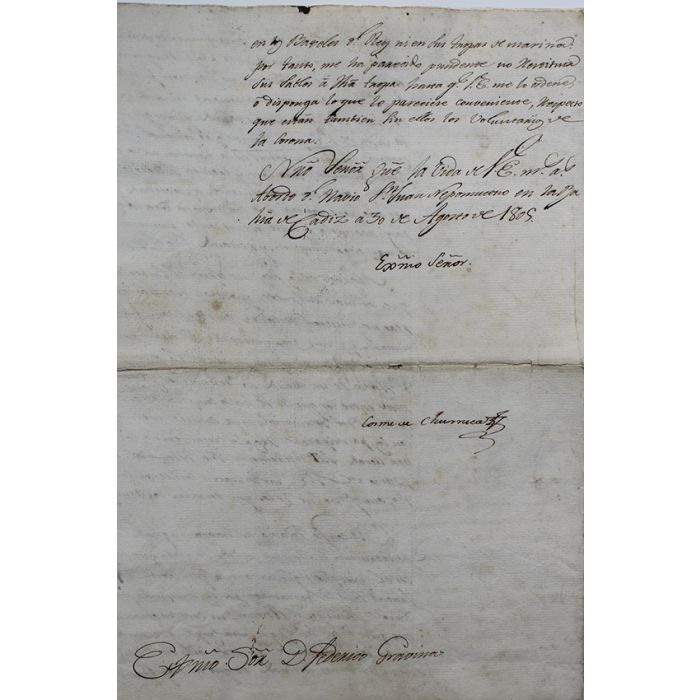 en los Baxeles del Rey ni en sus tropas de marina:
por tanto, me ha parecido prudente no
sus Sables á dha tropa hasta qe. V.E. me lo ordene,
ó disponga lo que le pareciere conveniente, respecto
que estan tambien sin ellos los Voluntarios de
la Corona.
Nro Señor gue la Vida de V.E. ms. as.
Abordo del Navio Sn. Juan Nepomuceno en la Ba
hia de Cadiz á 30 de Agosto de 1805.
Exmo Señor.
Cosme de Churruca
Exmo Sor. D. Federico Gravina